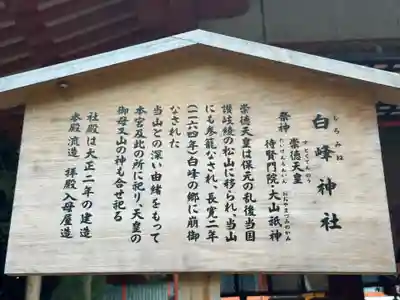 しろみね
白峰神社
祭神 崇徳天皇
待賢門院・大山祇神
崇徳天皇は保元の乱後当国
讃岐綾の松山に移られ、当山
にも参篭なされ、長寛二年
(一一六四年)白峰の郷に崩御
なされた
当山との深い由緒をもって
本宮及此の所に祀り、天皇の
御母又山の神も合せ祀る
社殿は大正二年の建造
本殿流造 拝殿入母屋造